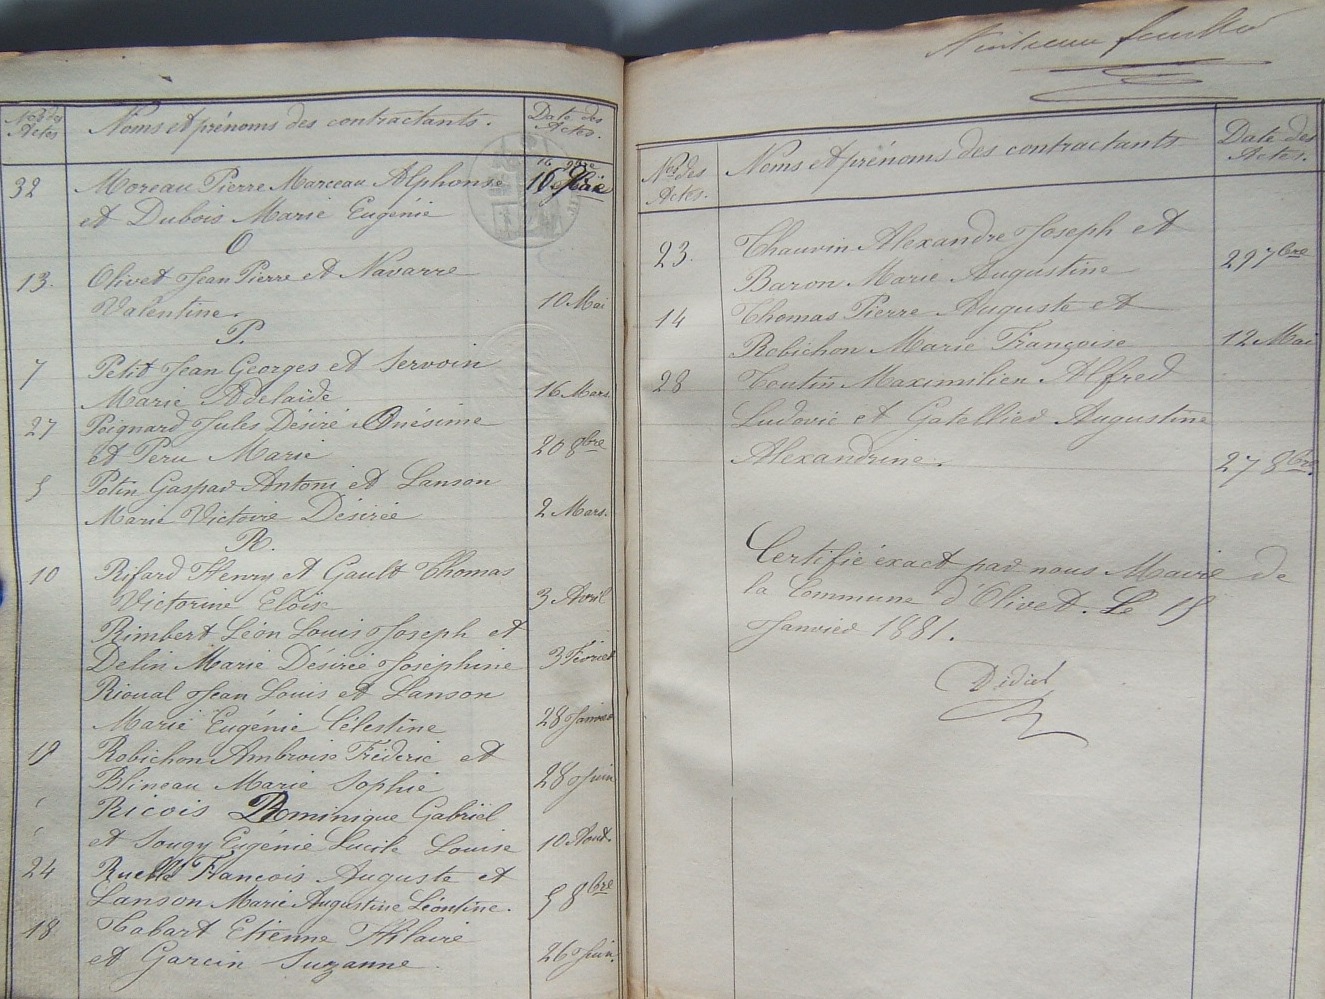 Nos des
Actes
Noms et prénoms des contractants.
Date des
Actes.
32
Moreau Pierre Marceau Alphonse
16 9bre
et Dubois Marie Eugénie
O
13.
Olivet Jean Pierre et Navarre
Valentine.
10 Mai
P.
7
Petit Jean Georges et Servoin
Marie Adelaïde
16 Mars.
27
Poignard Jules Désiré Onésime
et Peru Marie
20 8bre
5
Potin Gaspar Antoni et Lanson
Marie Victoire Désirée
2 Mars.
R.
10
Rifard Henry et Gault Thomas
Victorine Eloïse
3 Avril
Rimbert Léon Louis Joseph et
Delin Marie Désirée Joséphine
3 Février
Rioual Jean Louis et Lanson
Marie Eugénie Célestine
28 Janvier
19
Robichon Ambroise Fréderic et
Blineau Marie Sophie
28 Juin
Ricois Dominique Gabriel
et Sougy Eugénie Lucile Louise
10 Aout.
24
Ruelle François Auguste et
Lanson Marie Augustine Léontine.
5 8bre
18
Tabart Etienne Hilaire
et Garcin Suzanne.
26 Juin.
feuillet
Nos des
Actes.
Noms et prénoms des contractants
Date des
Actes.
23.
Chauvin Alexandre Joseph et
Baron Marie Augustine
29 7bre
14
Thomas Pierre Auguste et
Robichon Marie Françoise
12 Mai
28
Toutin Maximilien Alfred
Ludovic et Gatellier Augustine
Alexandrine.
27 8bre.
Certifié éxact par nous Maire de
la Commune d'Olivet. Le 15
Janvier 1881.